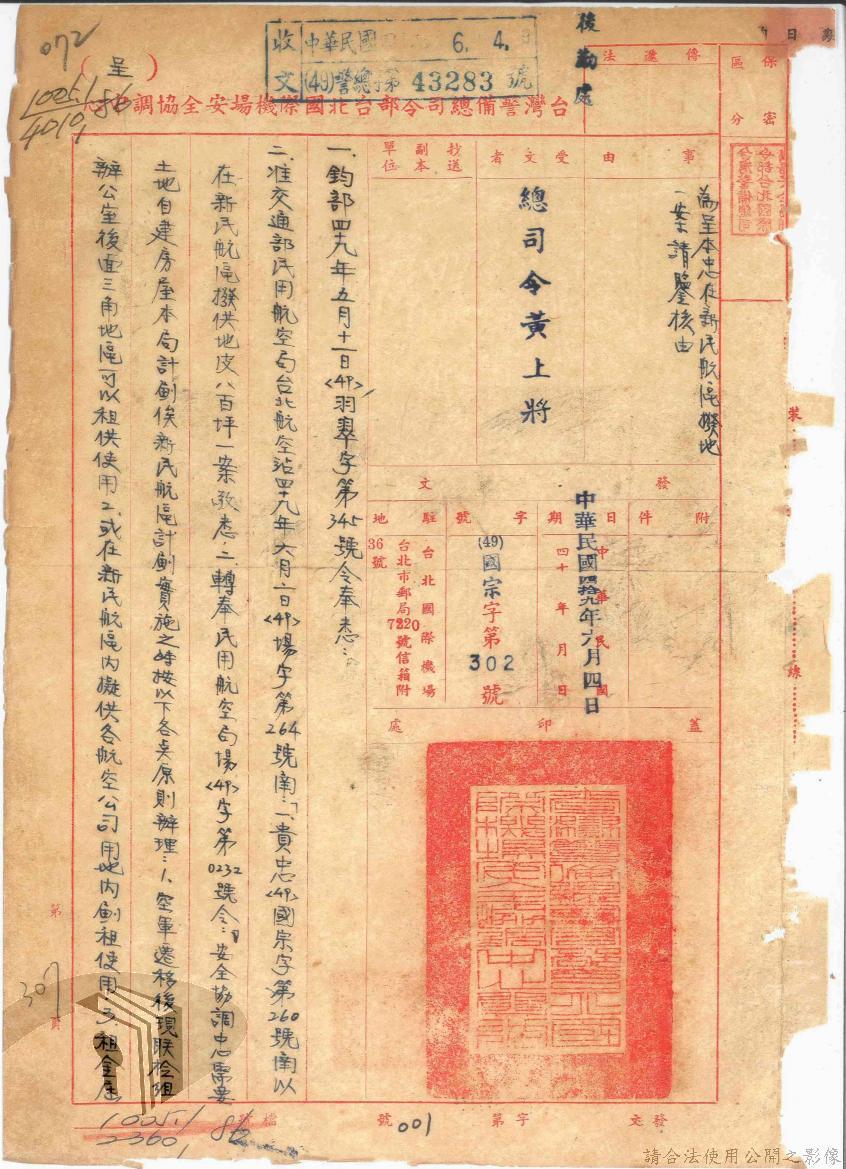 072
10051
4010
86
（呈）
收文
中華民國
6.4.
(49)警總字第43283號
後勤處
台灣警備總司令部台北國際機場安全協調中心
傳遞法
保密區分
事由
為呈本忠在新民航區撥地
一案請鑒核由
受文者
總司令黃上將
抄送副本單位
發文
附件
日期
中華民國四十年月日
中華民國四拾九年六月四日
字號
(49)國宗字第302號
駐地
台北國際機場
台北市郵局7220號信箱附
36號
蓋印處
一、鈞部四十九年五月十一日<49>羽翠字第345號令奉悉：
二、准交通部民用航空局台北航空站四十九年六月二日<49>場字第264號函：「一、貴忠<49>國宗字第260號函以
在新民航區撥供地皮八百坪一案敬悉。二、轉奉民用航空局場<49>字第0232號令：『安全協調中心需要
土地自建房屋本局計劃俟新民航區計劃實施之時按以下各点原則辦理：1、空軍遷移後現联检組
辦公室後面三角地區可以租供使用2、或在新民航區內擬供各航空公司用地內劃租使用3、租金應
裝
線
第
頁
307
10051
2360
86
檔號
001
發文
字第
號
請合法使用公開之影像